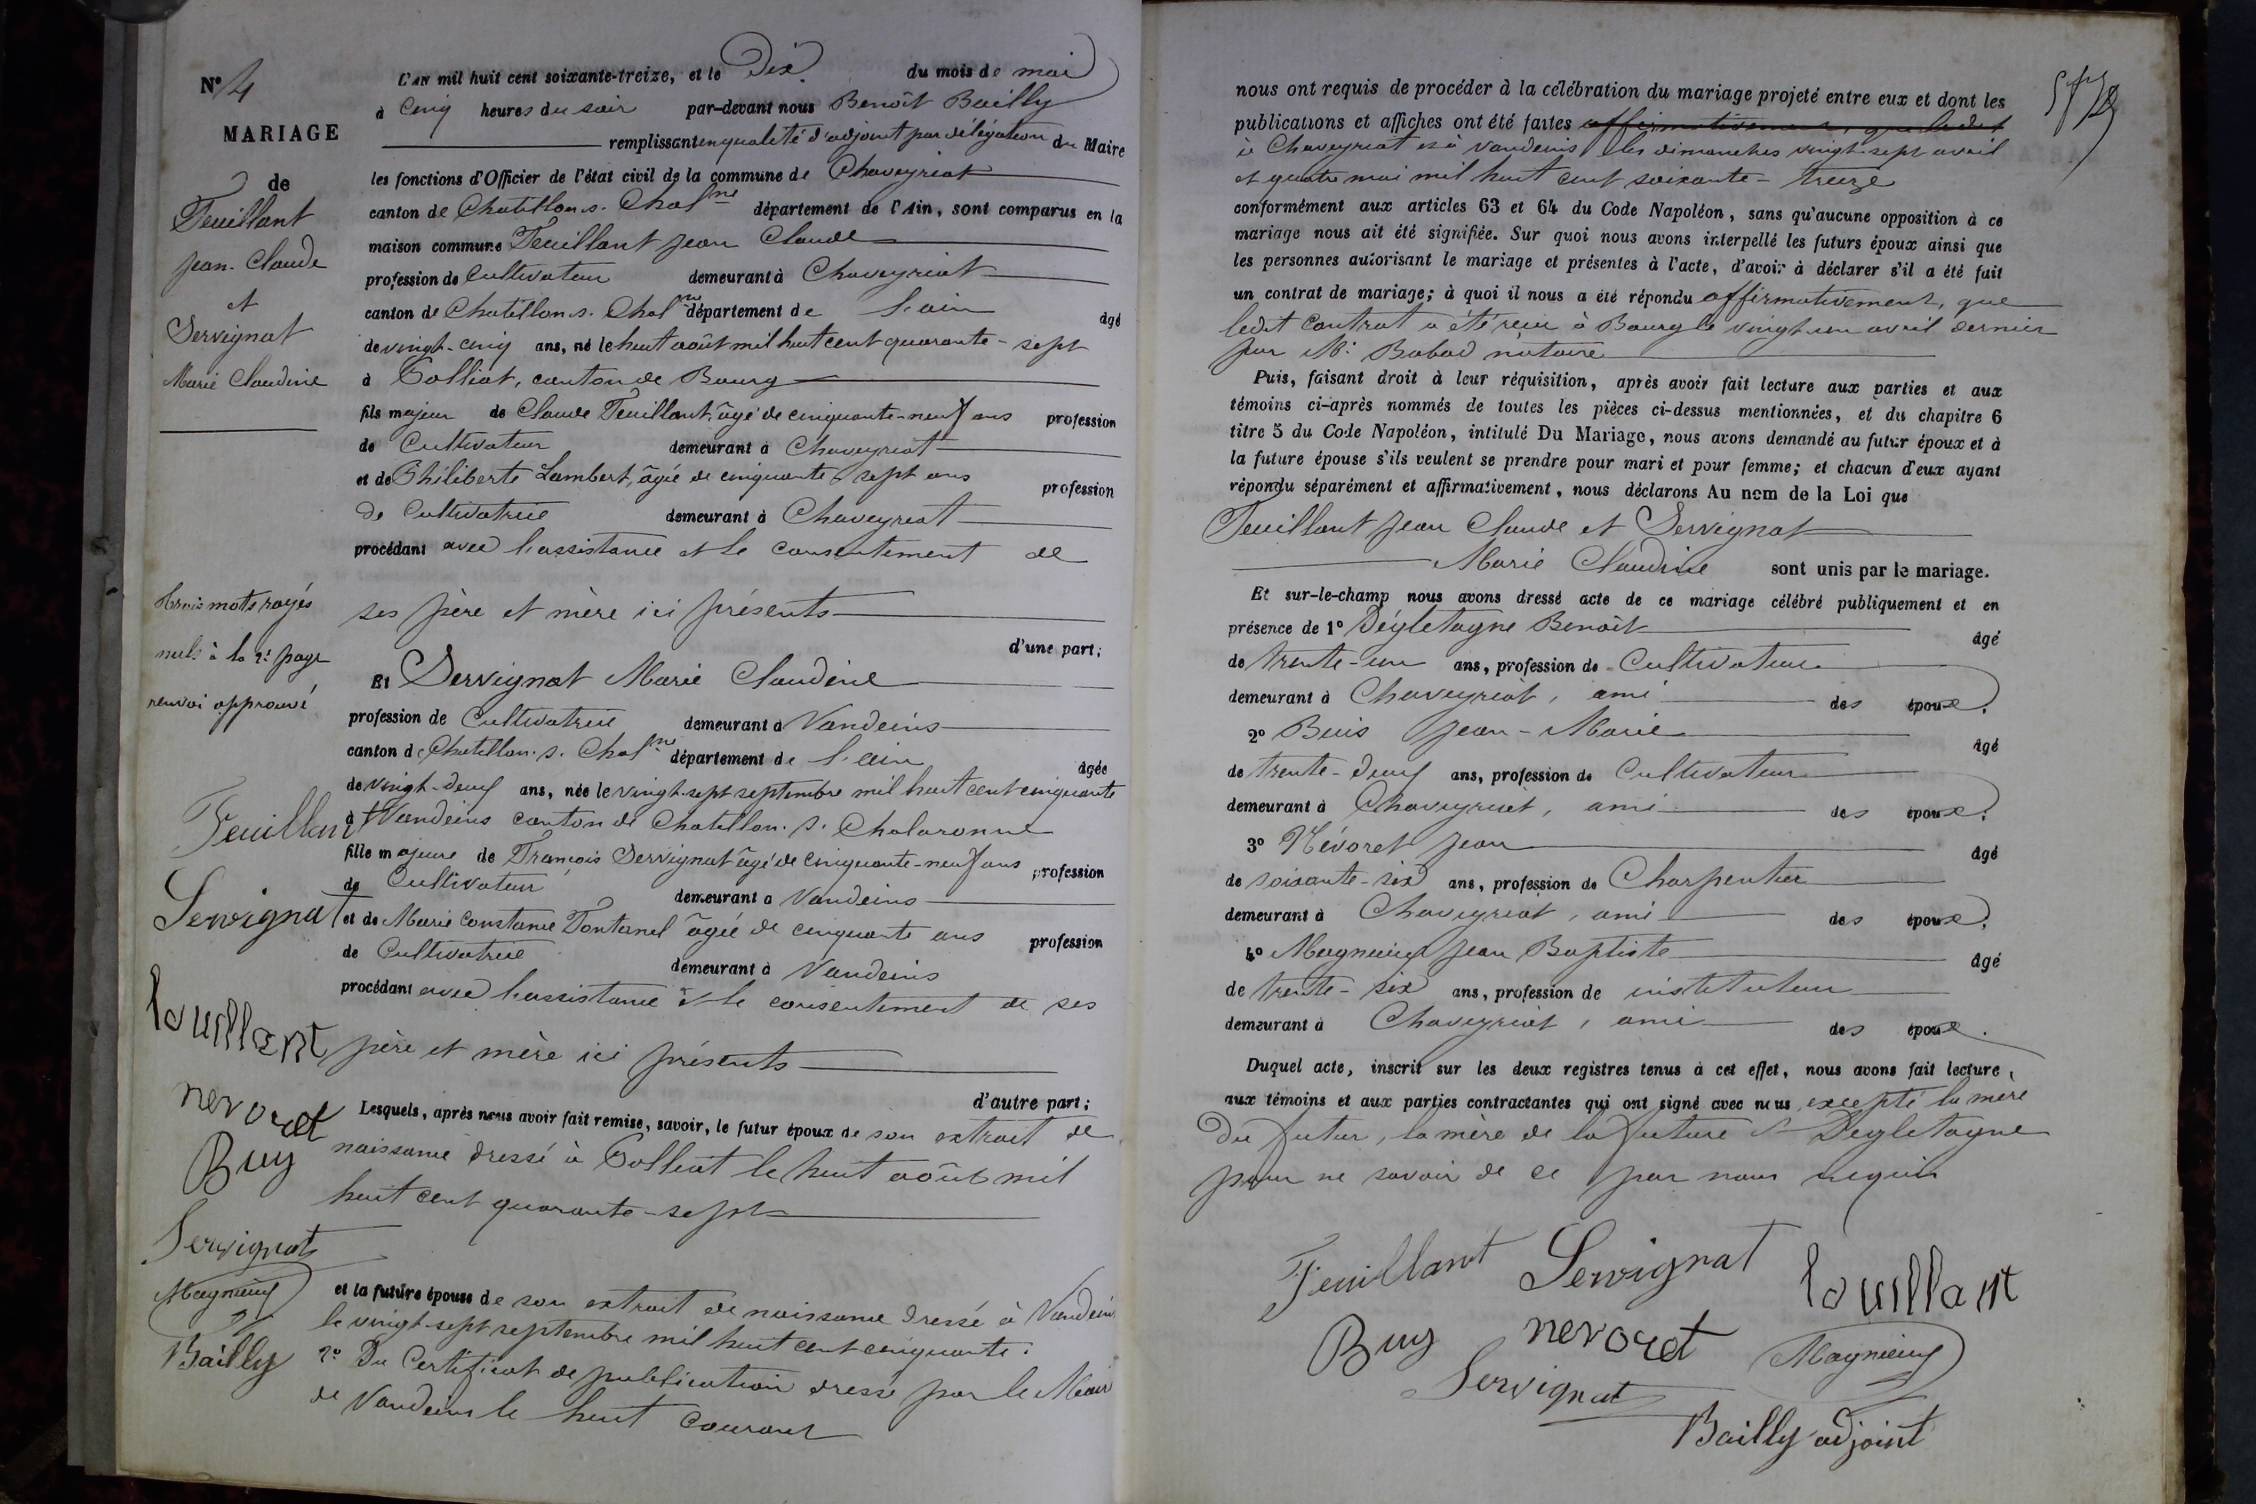 N° 4
MARIAGE
de
Feuillant
Jean-Claude
et
Servignat
Marie Claudine
L'an mil huit cent soixante-treize, et le Dix du mois de mai
à cinq heures du soir par-devant nous Benoît Bailly
remplissant en qualité d'adjoint par délégation du Maire
les fonctions d'Officier de l'état civil de la commune de Chaveyriat
canton de Chatillon s. Chal.ne département de l'Ain, sont comparus en la
maison commune Feuillant Jean Claude
profession de Cultivateur demeurant à Chaveyriat
canton de Chatillon s. Chal.ne département de l'ain âgé
de vingt-cinq ans, né le huit août mil huit cent quarante-sept
à Polliat, canton de Bourg
fils majeur de Claude Feuillant, âgé de cinquante-neuf ans profession
de Cultivateur demeurant à Chaveyriat
et de Philiberte Lambert, âgée de cinquante sept ans profession
de Cultivatrice demeurant à Chaveyriat
procédant avec l'assistance et le consentement de
ses père et mère ici présents
d'une part;
Et Servignat Marie Claudine
profession de Cultivatrice demeurant à Vandeins
canton de Chatillon s. Chal.ne département de l'ain âgée
de vingt-deux ans, née le vingt-sept septembre mil huit cent cinquante
à Vandeins canton de Chatillon s. Chalaronne
fille majeure de François Servignat âgé de cinquante-neuf ans profession
de Cultivateur demeurant à Vandeins
et de Marie Constance Fontanel âgée de cinquante ans profession
de Cultivatrice demeurant à Vandeins
procédant avec l'assistance et le consentement de ses
père et mère ici présents
d'autre part;
Lesquels, après nous avoir fait remise, savoir, le futur époux de son extrait de
naissance dressé à Polliat le huit août mil
huit cent quarante-sept
et la future épouse de son extrait de naissance dressé à Vandeins
le vingt-sept septembre mil huit cent cinquante:
2° Du Certificat de publication dressé par le Maire
de Vandeins le huit courant
trois mots rayés
nuls à la 2e page
renvoi approuvé
Feuillant
Servignat
louillant
nevoret
Buy
Servignat
Magnieny
Bailly
nous ont requis de procéder à la célébration du mariage projeté entre eux et dont les
publications et affiches ont été faites affirmativement, que ledit
à Chaveyriat et à Vandeins les dimanches vingt-sept avril
et quatre mai mil huit cent soixante-treize
conformément aux articles 63 et 64 du Code Napoléon, sans qu'aucune opposition à ce
mariage nous ait été signifiée. Sur quoi nous avons interpellé les futurs époux ainsi que
les personnes autorisant le mariage et présentes à l'acte, d'avoir à déclarer s'il a été fait
un contrat de mariage; à quoi il nous a été répondu affirmativement, que
ledit Contrat a été reçu à Bourg le vingt-un avril dernier
par Me Babad notaire
Puis, faisant droit à leur réquisition, après avoir fait lecture aux parties et aux
témoins ci-après nommés de toutes les pièces ci-dessus mentionnées, et du chapitre 6
titre 5 du Code Napoléon, intitulé Du Mariage, nous avons demandé au futur époux et à
la future épouse s'ils veulent se prendre pour mari et pour femme; et chacun d'eux ayant
répondu séparément et affirmativement, nous déclarons Au nom de la Loi que
Feuillant Jean Claude et Servignat
Marie Claudine sont unis par le mariage.
Et sur-le-champ nous avons dressé acte de ce mariage célébré publiquement et en
présence de 1° Dégletagne Benoît âgé
de trente-un ans, profession de Cultivateur
demeurant à Chaveyriat, ami des époux.
2° Buis Jean-Marie âgé
de trente-deux ans, profession de Cultivateur
demeurant à Chaveyriat, ami des époux.
3° Névoret Jean âgé
de soixante-six ans, profession de Charpentier
demeurant à Chaveyriat, ami des époux.
4° Magnieny Jean Baptiste âgé
de trente-six ans, profession de instituteur
demeurant à Chaveyriat, ami des époux.
Duquel acte, inscrit sur les deux registres tenus à cet effet, nous avons fait lecture,
aux témoins et aux parties contractantes qui ont signé avec nous excepté la mère
du futur, la mère de la future et Degletagne
pour ne savoir de ce par nous requis
Feuillant Servignat louillant
Buy nevoret Magnieny
Servignat
Bailly adjoint